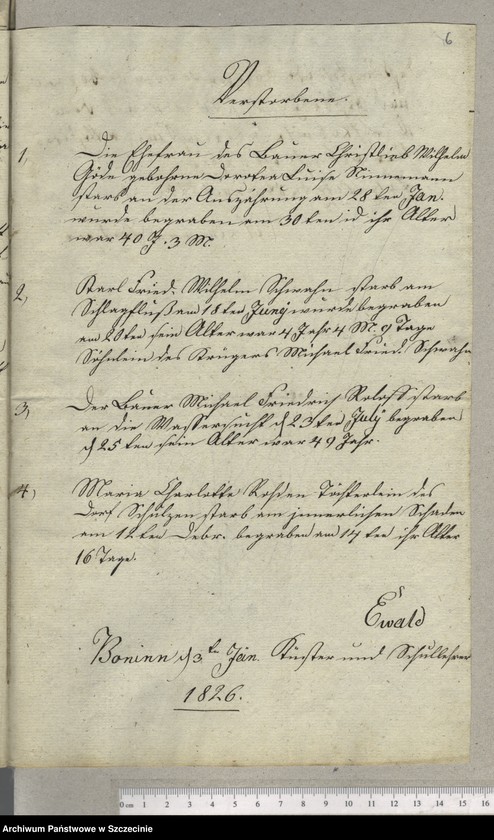 6
Verstorbene.
1, Die Ehefrau des Bauer Christlieb Wilhelm
Göde gebohrne Dorothea Luise
starb an der Auszährung am 28ten Jan.
wurde begraben am 30ten id ihr Alter
war 40 J. 3 M.
2, Karl Fried. Wilhelm Schwahn starb am
Schlagfluß am 18ten Juny wurde begraben
am 20ten sein Alter war 4 Jahr 4 M. 9 Tage
Söhnlein des Krügers Michael Fried. Schwahn
3, Der Bauer Michael Friedrich Roloff starb
an die Wassersucht d 23ten July begraben
d 25ten sein Alter war 49 Jahr.
4, Maria Charlotte Töchterlein des
Dorf Schulzen starb am innerlichen Schaden
am 12ten Debr. begraben am 14ten ihr Alter
16 Tage.
Ewald
Boninn d 3te Jan. Küster und Schullehrer
1826.
0 cm 1 2 3 4 5 6 7 8 9 10 11 12 13 14 15 16
Archiwum Państwowe w Szczecinie